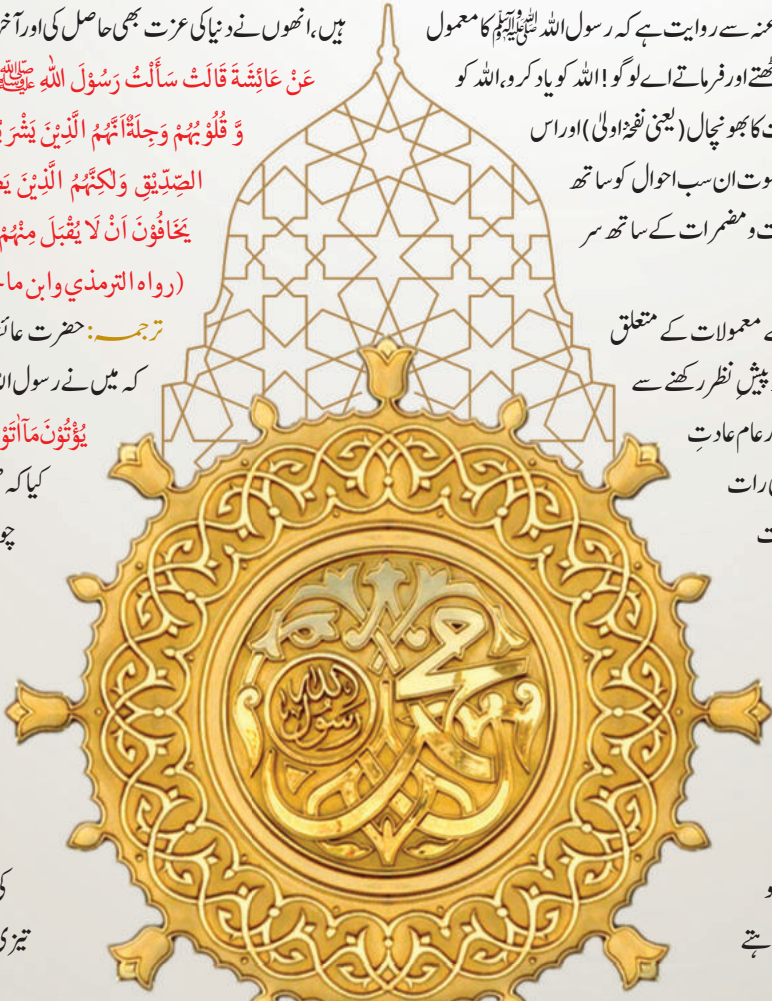 عنہ سے روایت ہے کہ رسول اللہ ﷺ کا معمول
ٹھتے اور فرماتے اے لوگو! اللہ کو یاد کرو، اللہ کو
ت کا بھونچال (یعنی نفخۂ اولیٰ) اور اس
موت ان سب احوال کو ساتھ
ت و مضمرات کے ساتھ سر
ے معمولات کے متعلق
پیشِ نظر رکھنے سے
ر عام عادتِ
رات
ت
و
ہتے
ہیں، انھوں نے دنیا کی عزت بھی حاصل کی اور آخر
عَنْ عَائِشَةَ قَالَتْ سَأَلْتُ رَسُوْلَ اللهِ ﷺ
وَّ قُلُوْبُهُمْ وَجِلَةٌ اَنَّهُمُ الَّذِيْنَ يَشْرَ
الصِّدِّيْقِ وَلٰكِنَّهُمُ الَّذِيْنَ يَصُ
يَخَافُوْنَ اَنْ لَا يُقْبَلَ مِنْهُمْ
(رواه الترمذي وابن ما
ترجمہ: حضرت عائ
کہ میں نے رسول ال
يُؤْتُوْنَ مَآ اٰتَوْ
کیا کہ
چو
کی
تیزی
محمد
رسول الله